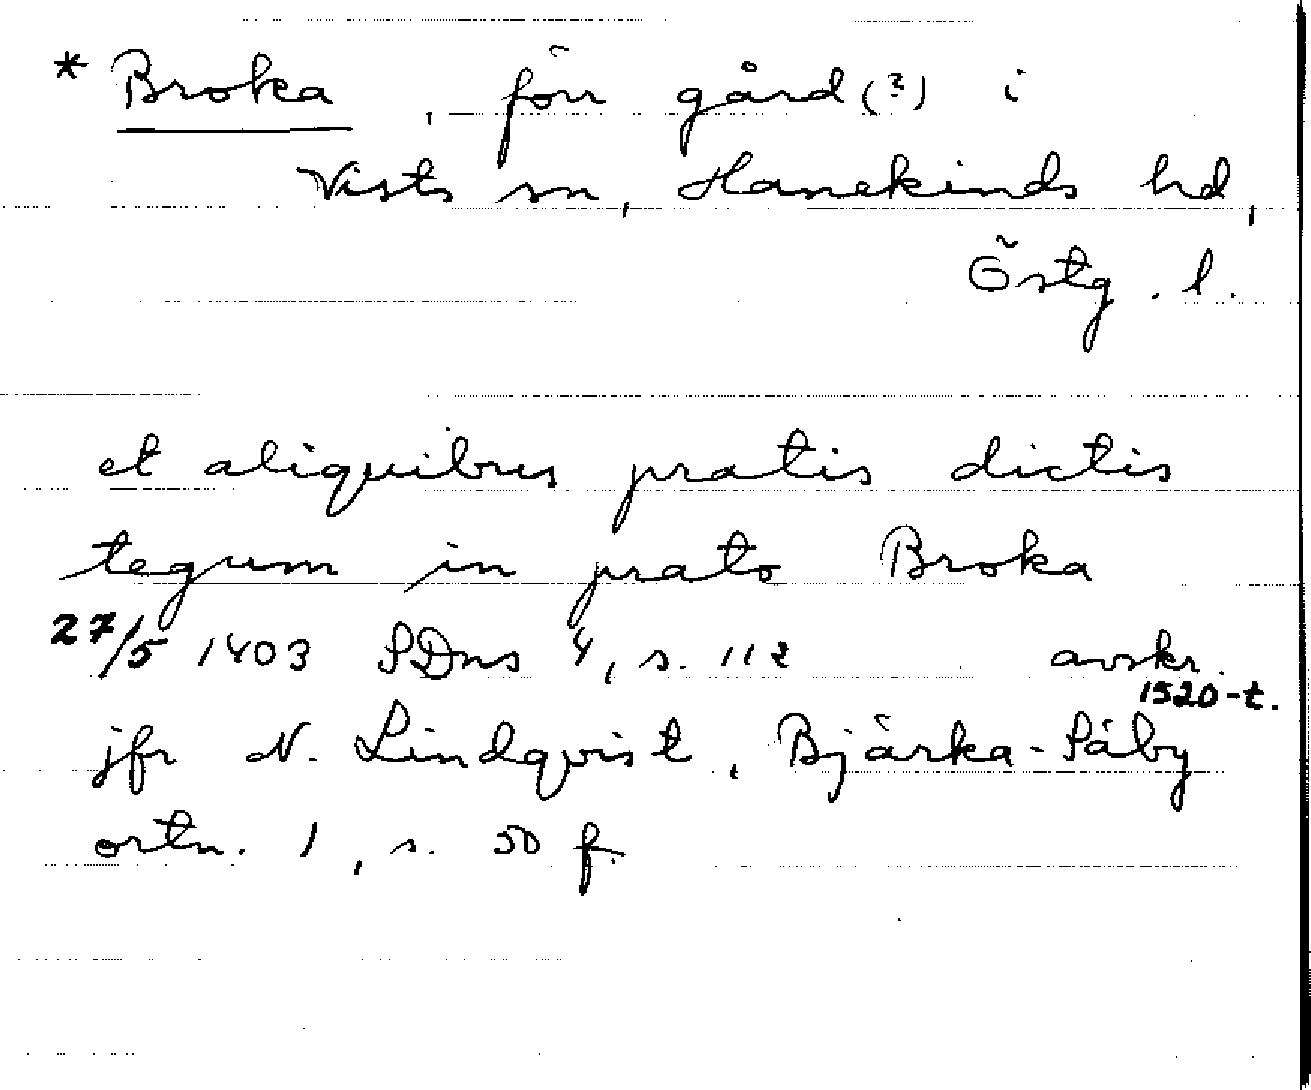 * Broka, förr gård (?) i
Vists sn, Hanekinds hd,
Östg. l.
et aliquibus pratis dictis
tegum in prato Broka
27/5 1403 SDns 4, s. 112 avskr.
1520-t.
jfr N. Lindqvist, Bjärka-Säby
ortn. 1, s. 50 f.